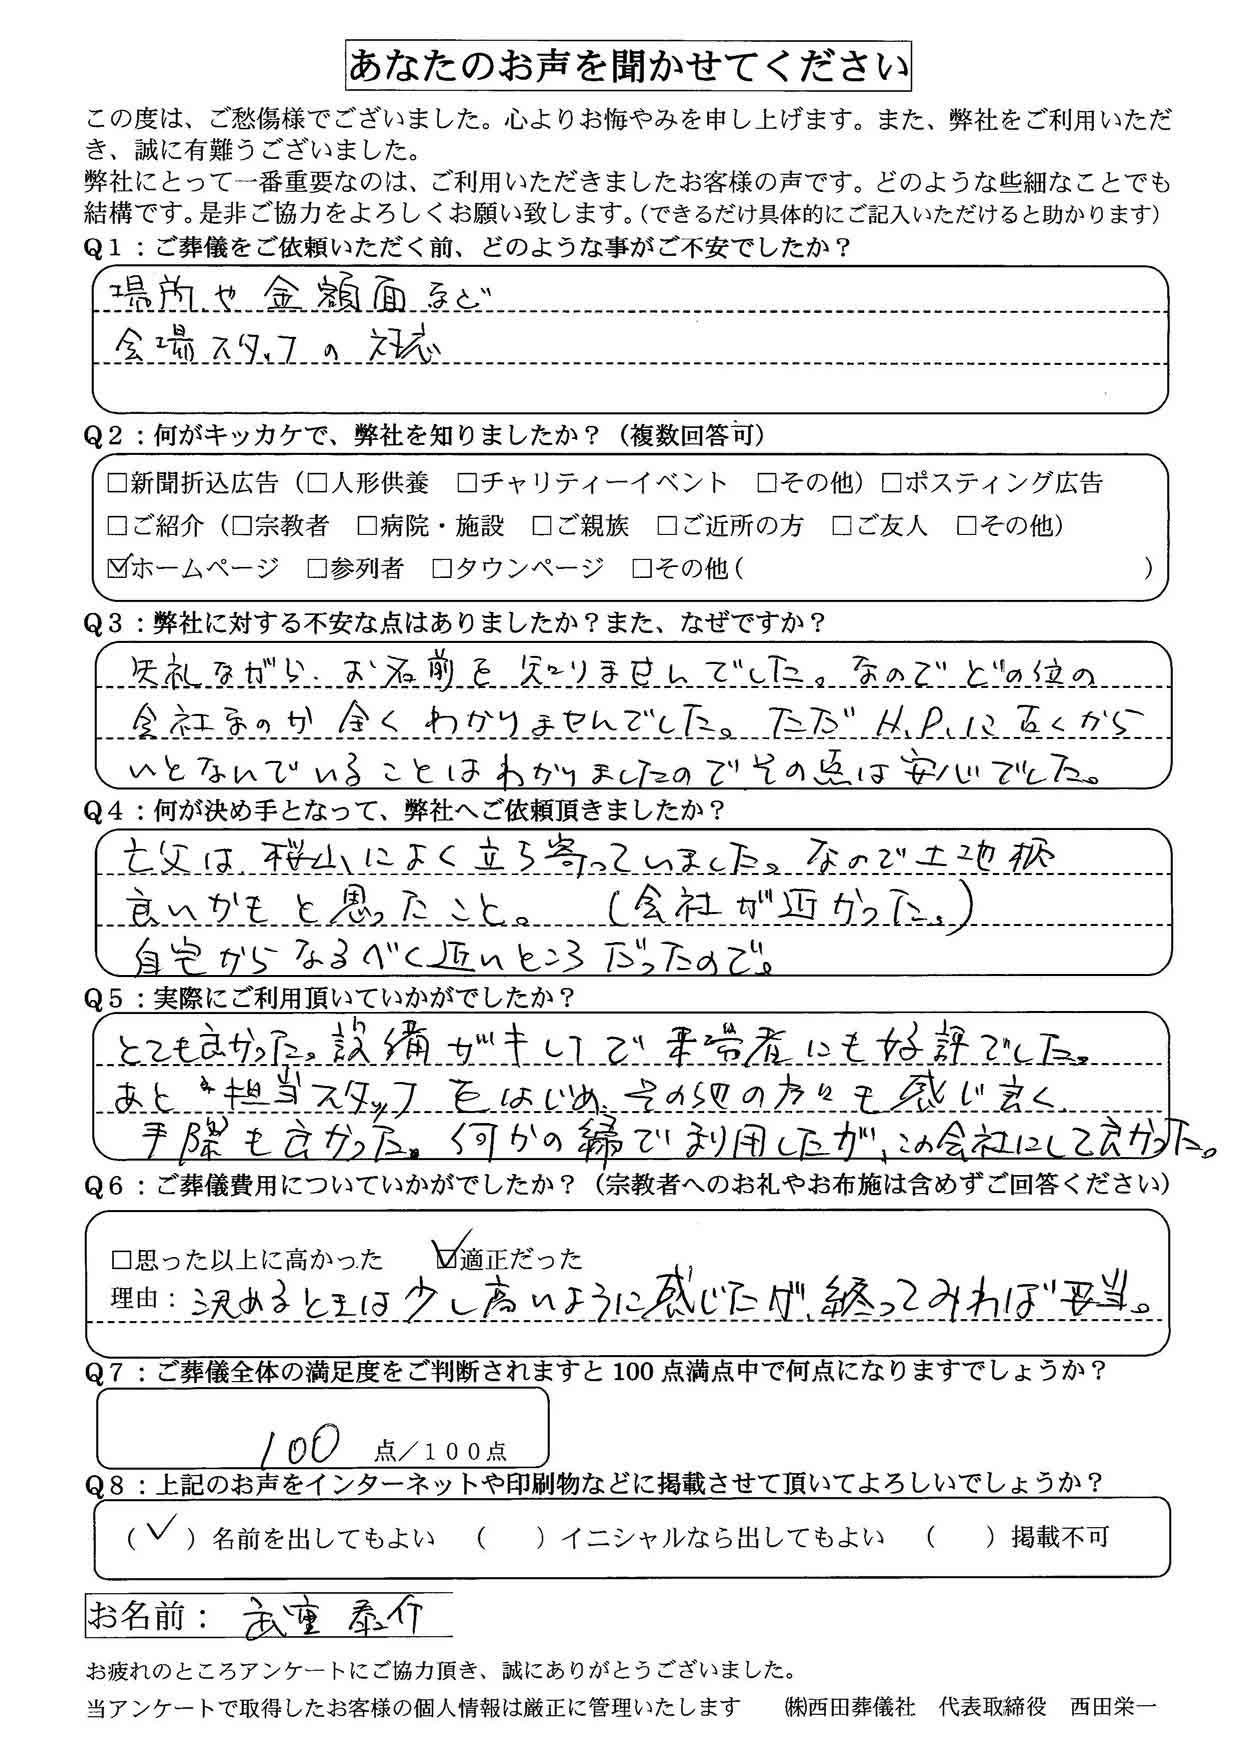 あなたのお声を聞かせてください
この度は、ご愁傷様でございました。心よりお悔やみを申し上げます。また、弊社をご利用いただ
き、誠に有難うございました。
弊社にとって一番重要なのは、ご利用いただきましたお客様の声です。どのような些細なことでも
結構です。是非ご協力をよろしくお願い致します。（できるだけ具体的にご記入いただけると助かります）
Q1：ご葬儀をご依頼いただく前、どのような事がご不安でしたか？
場所や金額面など
会場スタッフの対応
Q2：何がキッカケで、弊社を知りましたか？（複数回答可）
□新聞折込広告（□人形供養　□チャリティーイベント　□その他）□ポスティング広告
□ご紹介（□宗教者　□病院・施設　□ご親族　□ご近所の方　□ご友人　□その他）
☑ホームページ　□参列者　□タウンページ　□その他（　　　　　　　　　　　　　　　　）
Q3：弊社に対する不安な点はありましたか？また、なぜですか？
失礼ながら、お名前を知りませんでした。なのでどの位の
会社なのか全くわかりませんでした。ただH.P.に古くから
いとなんでいることはわかりましたのでその点は安心でした。
Q4：何が決め手となって、弊社へご依頼頂きましたか？
亡父は、桜山によく立ち寄っていました。なので土地柄
良いかもと思ったこと。（会社が近かった。）
自宅からなるべく近いところだったので。
Q5：実際にご利用頂いていかがでしたか？
とても良かった。設備がキレイで来場者にも好評でした。
あと担当スタッフをはじめ、その他の方々も感じ良く、
手際も良かった。何かの縁で利用したが、この会社にして良かった。
Q6：ご葬儀費用についていかがでしたか？（宗教者へのお礼やお布施は含めずご回答ください）
□思った以上に高かった　　☑適正だった
理由：決めるときは少し高いように感じたが、終ってみれば妥当。
Q7：ご葬儀全体の満足度をご判断されますと100点満点中で何点になりますでしょうか？
100 点／１００点
Q8：上記のお声をインターネットや印刷物などに掲載させて頂いてよろしいでしょうか？
（✓）名前を出してもよい　（　　）イニシャルなら出してもよい　（　　）掲載不可
お名前：武重 泰介
お疲れのところアンケートにご協力頂き、誠にありがとうございました。
当アンケートで取得したお客様の個人情報は厳正に管理いたします　㈱西田葬儀社　代表取締役　西田栄一